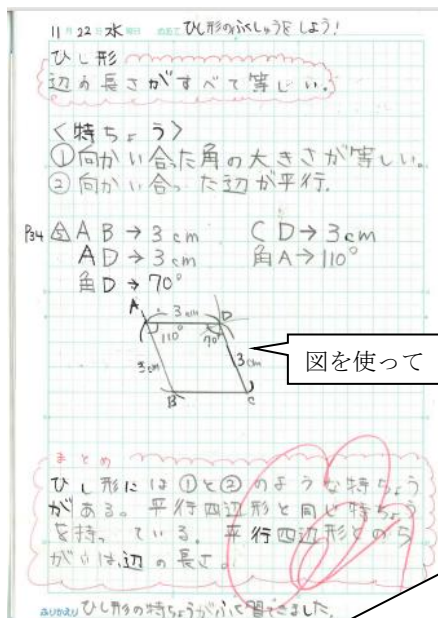 11月22日水曜日 めあて ひし形のふくしゅうをしよう!
ひし形
辺の長さがすべて等しい。
<特ちょう>
①向かい合った角の大きさが等しい。
②向かい合った辺が平行.
P34 △5 AB→3cm CD→3cm
AD→3cm 角A→110°
角D→70°
A 3cm D
110° 70°
3cm 3cm
B C
図を使って
まとめ
ひし形には①と②のような特ちょう
がある。平行四辺形と同じ特ちょう
を持っている。平行四辺形とのち
がいは、辺の長さ。
ふりかえり ひし形の特ちょうがふく習できました。